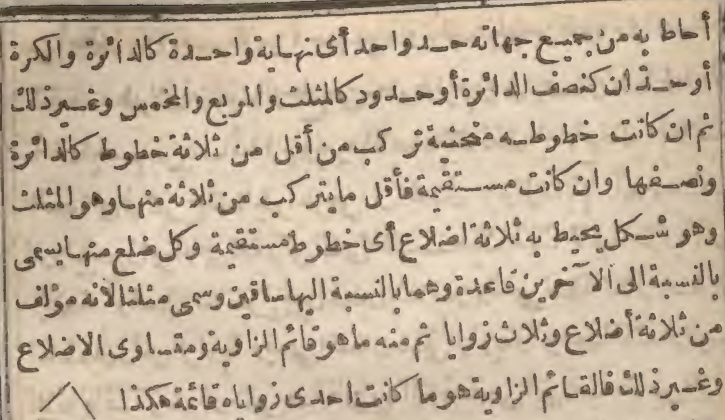 أحاط به من جميع جهاته حد واحد أى نهاية واحدة كالدائرة والكرة
أو حدان كنصف الدائرة أو حدود كالمثلث والمربع والمخمس وغير ذلك
ثم ان كانت خطوطه منحنية تركب من أقل من ثلاثة خطوط كالدائرة
ونصفها وان كانت مستقيمة فأقل ما يتركب من ثلاثة منها وهو المثلث
وهو شكل يحيط به ثلاثة اضلاع أى خطوط مستقيمة وكل ضلع منها يسمى
بالنسبة الى الآخرين قاعدة وهما بالنسبة اليها ساقين وسمى مثلثا لأنه مؤلف
من ثلاثة أضلاع وثلاث زوايا ثم منه ما هو قائم الزاوية ومتساوى الاضلاع
وغير ذلك فالقائم الزاوية هو ما كانت احدى زواياه قائمة هكذا